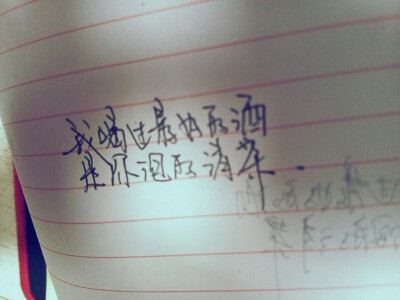 我喝过最好的酒
是你泡的清茶.